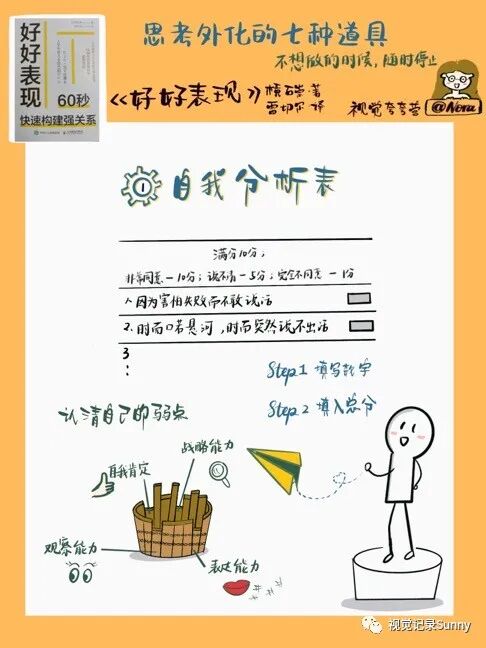 思考外化的七种道具
不想做的时候,随时停止
好好表现
60秒
快速构建强关系
《好好表现》
雷切尔 译
视觉夸夸营 @Nora
① 自我分析表
满分10分;
非常同意-10分;说不清-5分;完全不同意-1分
1.因为害怕失败而不敢说话
2.时而口若悬河,时而突然说不出话
3
:
Step 1 填写数字
Step 2 填入总分
认清自己的弱点
战略能力
自我肯定
观察能力
表达能力
视觉记录Sunny